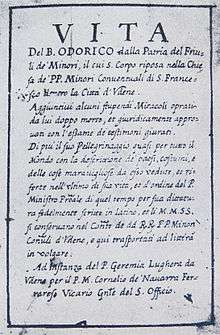 VITA
Del B. ODORICO dalla Patria del Friuli
de Minori, il cui S. Corpo riposa nella Chie
sa de' PP. Minori Conventuali di S. France
sco dentro la Città d'Udene.
Aggiuntivi alcuni stupendi Miracoli oprati
da lui doppo morte, et giuridicamente approu
ati con l'esame de testimoni giurati.
Di più il suo Pellegrinaggio quasi per tutto il
Mondo con la descrizione de' costumi, e
delle cose maravigliose da esso vedute, et ri
ferte nell'ultimo di sua vita, et d'ordine del P.
Ministro Prale di quel tempo per sua dettatura
fidelmente scritte in latino, et li M.M.S.S.
si conservano nel Conto de dd. RR. PP. Minori
Conuli d'Udene, e qui trasportati ad litterā
in volgare.
Ad instanza del P. Geremia Lughera da
Udene per il P. M. Cornelio de Navarra Fer
rarese Vicario Gnte del S. Officio.